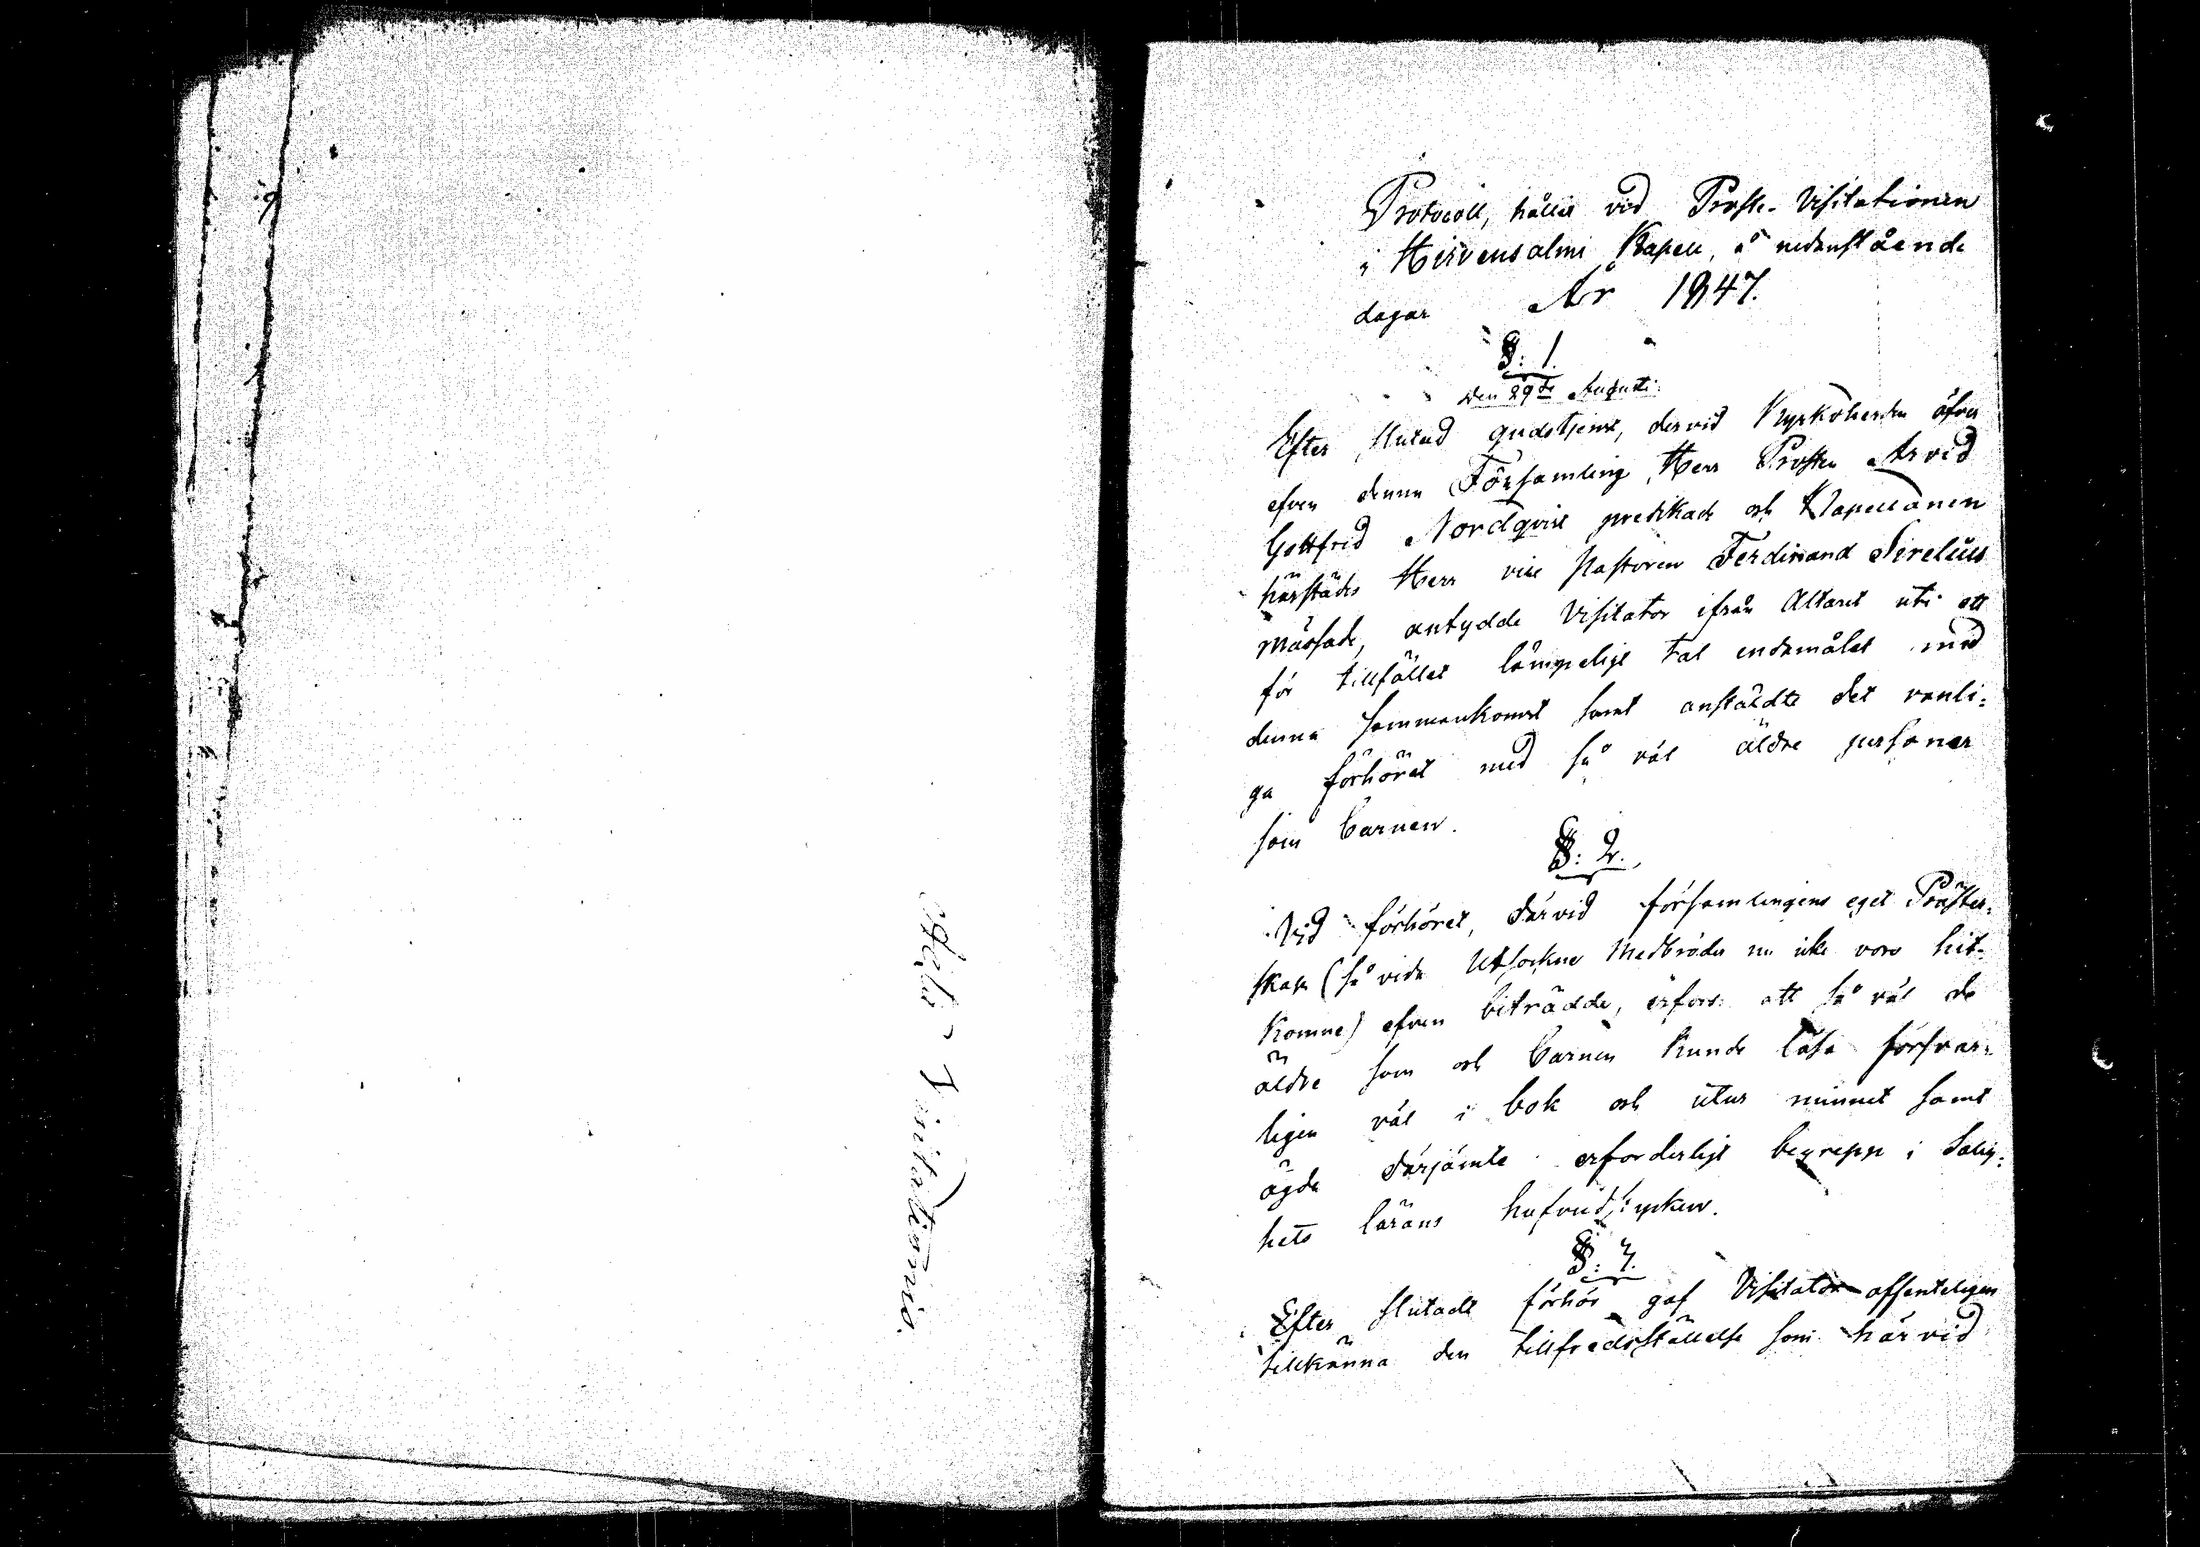 Acta Visitationis.
Protocoll, hållit vid Prosti-Visitationen
i Hirvensalmi Kapell, å nedanstående
dagar År 1847.
§: 1.
Den 29de Augusti.
Efter slutad gudstjenst, dervid Kyrkoherden öfver
efven denna Församling, Herr Prosten Arvid
Gottfrid Nordqvist predikade och Kapellanen
härstädes Herr vice Pastoren Ferdinand Sirelius
mässade, antydde Visitator ifrån Altaret uti ett
för tillfället lämpeligt tal endamålet med
denna sammankomst samt anstäldte det vanli=
ga förhöret med så väl äldre personer
som barnen.
§: 2.
Vid förhöret, därvid församlingens eget Präster=
skap (så vida Utsockne Medbröder nu icke voro hit=
komne) efven biträdde, erfors att så väl de
äldre som och barnen kunde läsa försvar=
ligen väl i bok och utur minnet samt
ägde därjämte erforderligt begrepp i Salig=
hets lärans hufvudstycken.
§: 3.
Efter slutadt förhör gaf Visitator offenteligen
tillkänna den tillfredsställelse som härvid